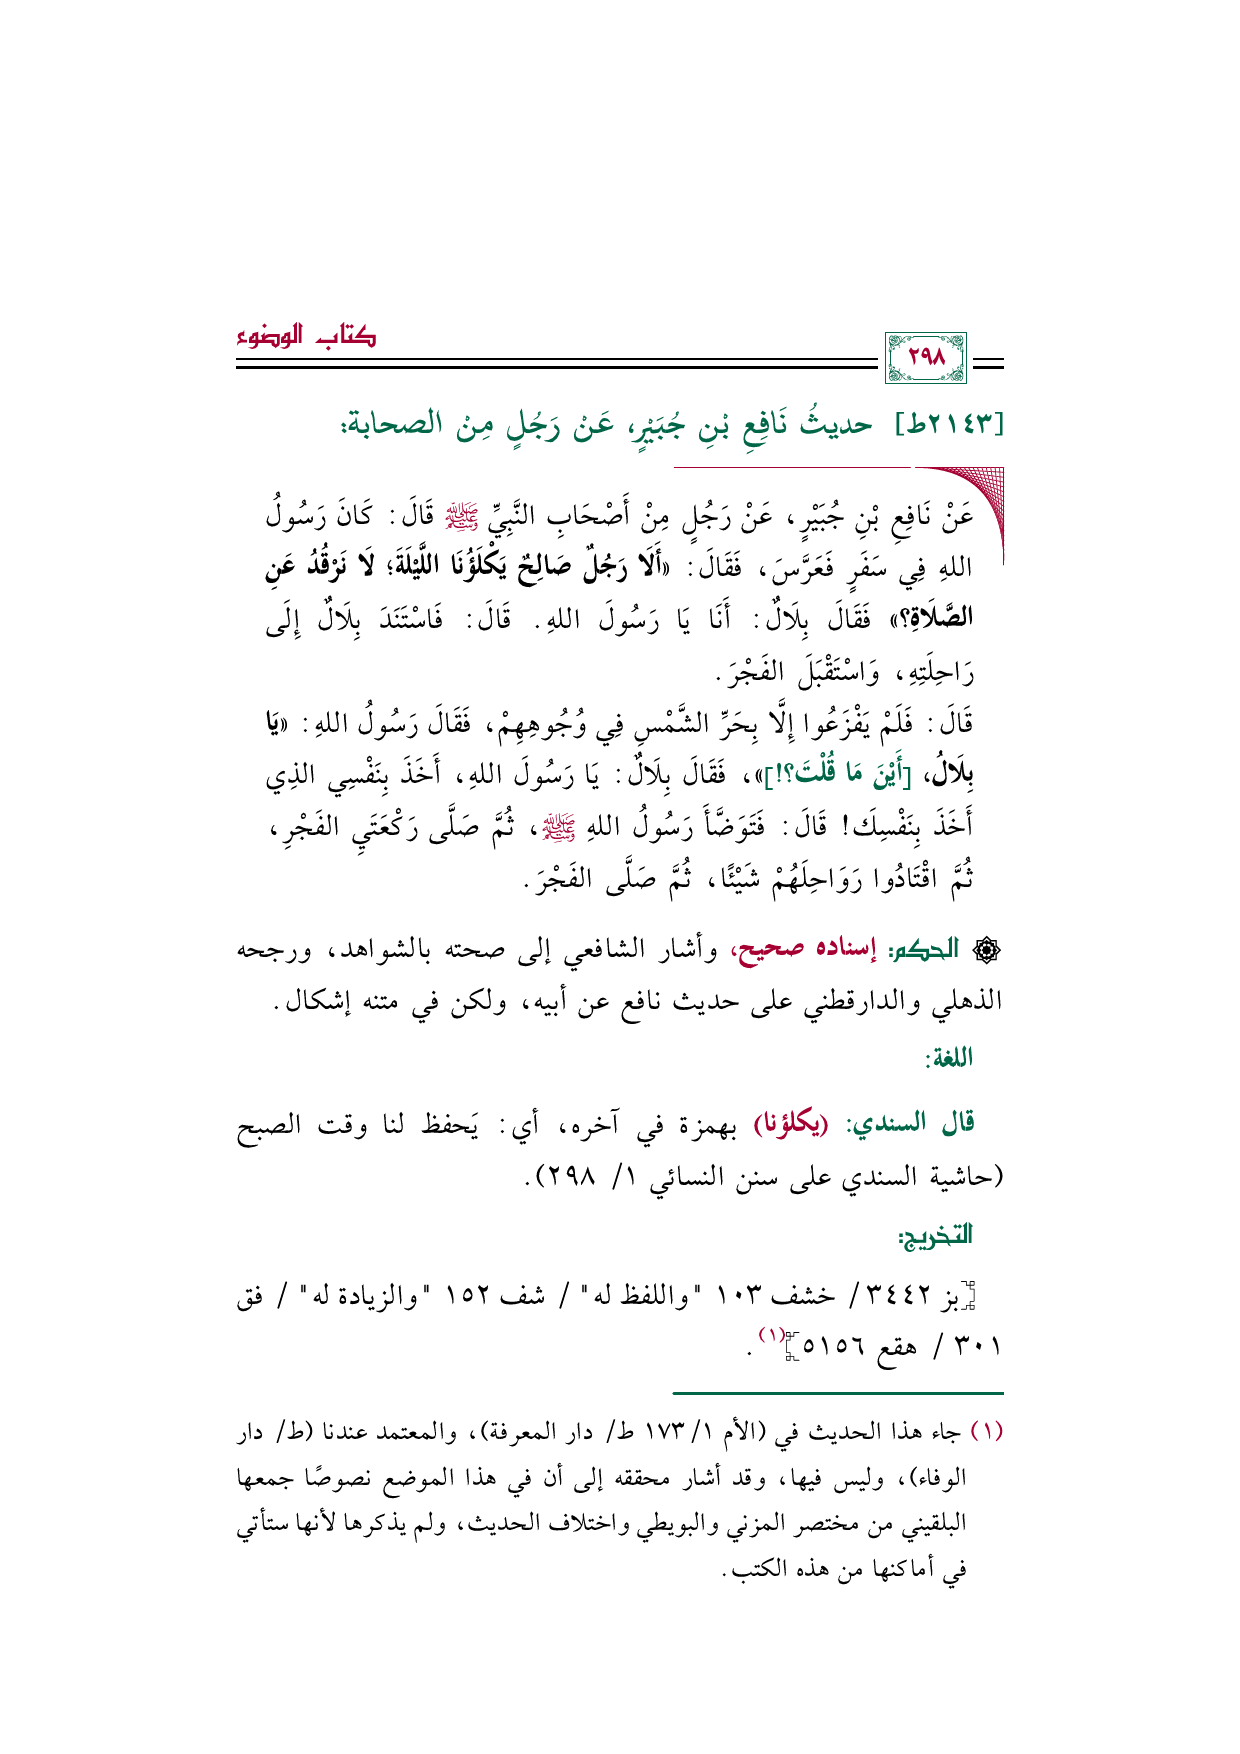 كتاب الوضوء
٢٩٨
[٢١٤٣ط] حديثُ نَافِعِ بْنِ جُبَيْرٍ، عَنْ رَجُلٍ مِنْ الصحابة:
عَنْ نَافِعِ بْنِ جُبَيْرٍ، عَنْ رَجُلٍ مِنْ أَصْحَابِ النَّبِيِّ ﷺ قَالَ: كَانَ رَسُولُ
اللهِ فِي سَفَرٍ فَعَرَّسَ، فَقَالَ: «أَلَا رَجُلٌ صَالِحٌ يَكْلَؤُنَا اللَّيْلَةَ؛ لَا نَرْقُدُ عَنِ
الصَّلَاةِ؟» فَقَالَ بِلَالٌ: أَنَا يَا رَسُولَ اللهِ. قَالَ: فَاسْتَنَدَ بِلَالٌ إِلَى
رَاحِلَتِهِ، وَاسْتَقْبَلَ الفَجْرَ.
قَالَ: فَلَمْ يَفْزَعُوا إِلَّا بِحَرِّ الشَّمْسِ فِي وُجُوهِهِمْ، فَقَالَ رَسُولُ اللهِ: «يَا
بِلَالُ، [أَيْنَ مَا قُلْتَ؟!]»، فَقَالَ بِلَالٌ: يَا رَسُولَ اللهِ، أَخَذَ بِنَفْسِي الذِي
أَخَذَ بِنَفْسِكَ! قَالَ: فَتَوَضَّأَ رَسُولُ اللهِ ﷺ، ثُمَّ صَلَّى رَكْعَتَيِ الفَجْرِ،
ثُمَّ اقْتَادُوا رَوَاحِلَهُمْ شَيْئًا، ثُمَّ صَلَّى الفَجْرَ.
الحكم: إسناده صحيح، وأشار الشافعي إلى صحته بالشواهد، ورجحه
الذهلي والدارقطني على حديث نافع عن أبيه، ولكن في متنه إشكال.
اللغة:
قال السندي: (يكلؤنا) بهمزة في آخره، أي: يَحفظ لنا وقت الصبح
(حاشية السندي على سنن النسائي ١/ ٢٩٨).
التخريج:
[بز ٣٤٤٢/ خشف ١٠٣ "واللفظ له" / شف ١٥٢ "والزيادة له" / فق
٣٠١ / هقع ٥١٥٦](١).
(١) جاء هذا الحديث في (الأم ١/ ١٧٣ ط/ دار المعرفة)، والمعتمد عندنا (ط/ دار
الوفاء)، وليس فيها، وقد أشار محققه إلى أن في هذا الموضع نصوصًا جمعها
البلقيني من مختصر المزني والبويطي واختلاف الحديث، ولم يذكرها لأنها ستأتي
في أماكنها من هذه الكتب.